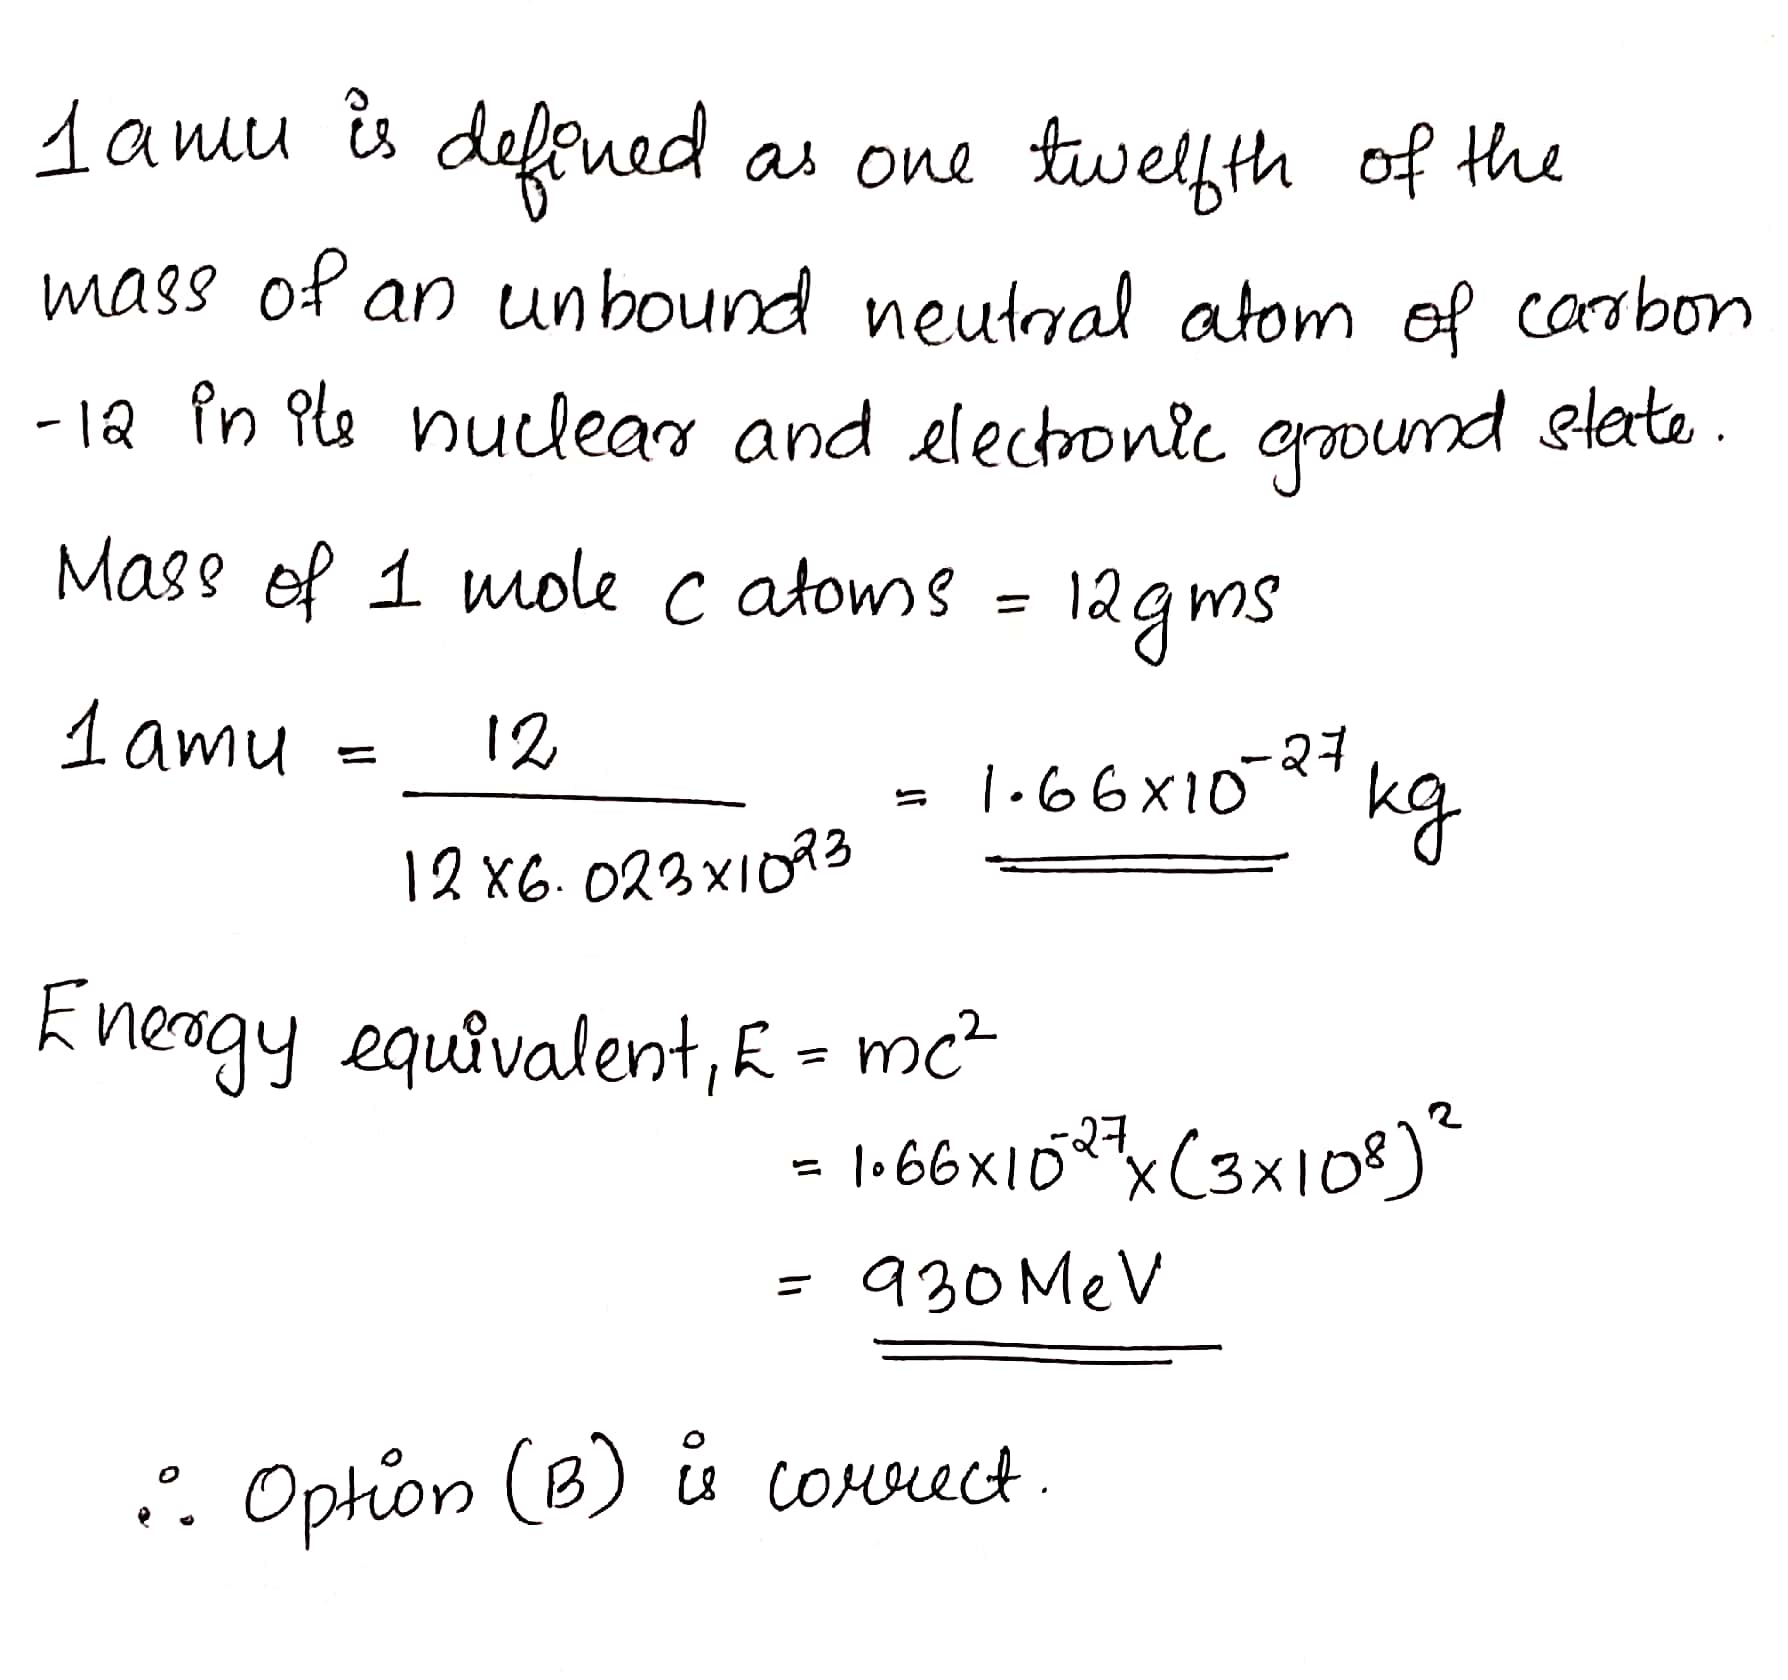 1 amu is defined as one twelfth of the
mass of an unbound neutral atom of carbon
-12 in its nuclear and electronic ground state.
Mass of 1 mole C atoms = 12gms
1 amu = 12 / 12×6.023×10²³ = 1.66×10⁻²⁷ kg
Energy equivalent, E = mc²
= 1.66×10⁻²⁷×(3×10⁸)²
= 930 MeV
∴ Option (B) is correct.